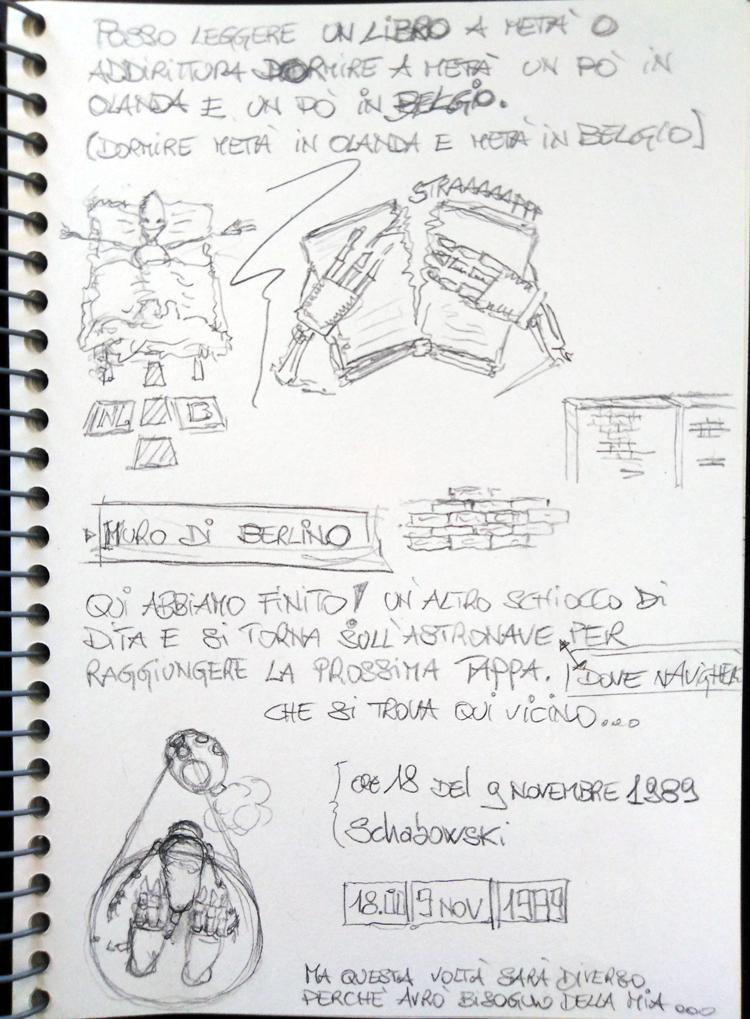 POSSO LEGGERE UN LIBRO A METÀ O
ADDIRITTURA DORMIRE A METÀ UN PÒ IN
OLANDA E UN PÒ IN BELGIO.
(DORMIRE METÀ IN OLANDA E METÀ IN BELGIO)
STRAAAAAPP
NL B
MURO DI BERLINO
QUI ABBIAMO FINITO! UN'ALTRO SCHIOCCO DI
DITA E SI TORNA SULL'ASTRONAVE PER
RAGGIUNGERE LA PROSSIMA TAPPA. DOVE NAVIGHER
CHE SI TROVA QUI VICINO...
ORE 18 DEL 9 NOVEMBRE 1989
Schabowski
18.00 9 NOV. 1989
MA QUESTA VOLTA SARÀ DIVERSO
PERCHÈ AVRÒ BISOGNO DELLA MIA ...